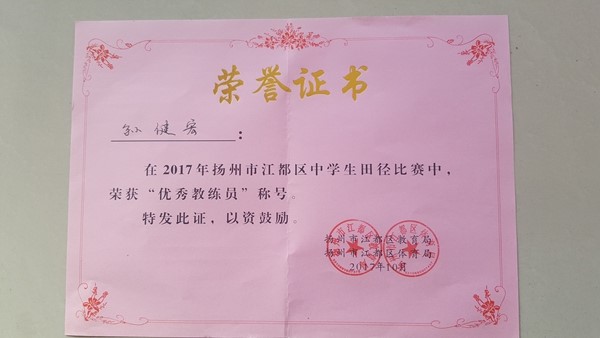 荣誉证书
孙健宏:
在2017年扬州市江都区中学生田径比赛中,
荣获“优秀教练员”称号。
特发此证,以资鼓励。
扬州市江都区教育局
扬州市江都区体育局
2017年10月